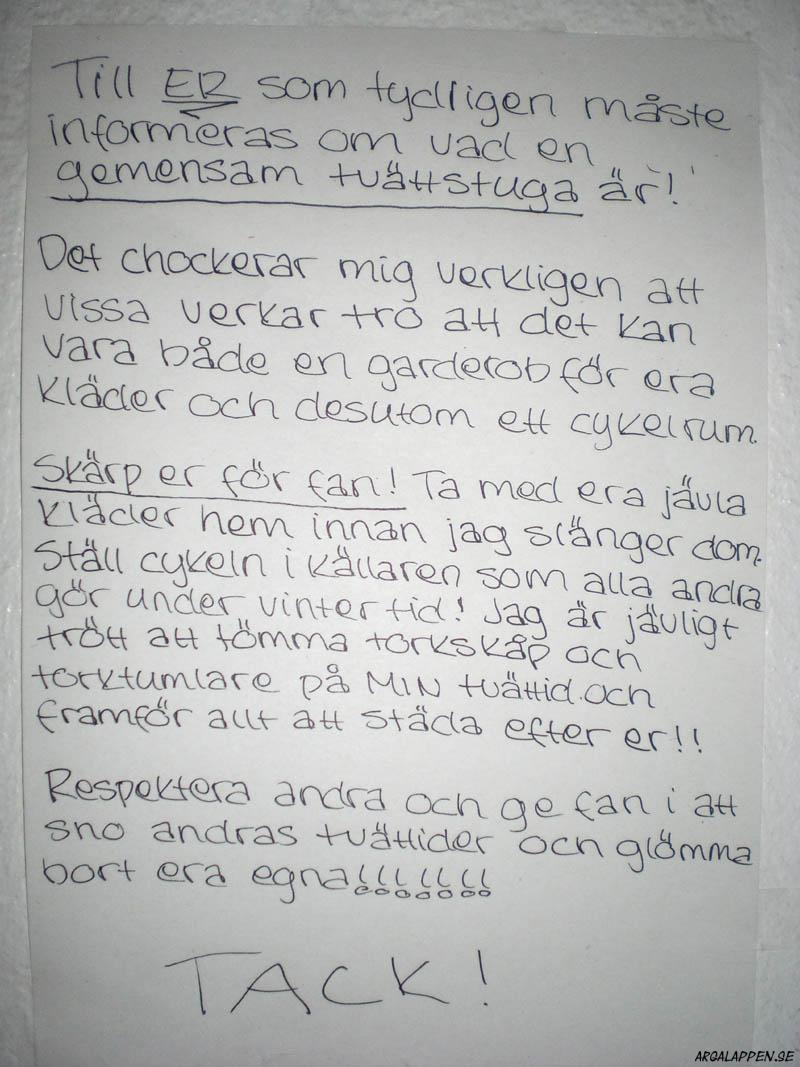 Till ER som tydligen måste
informeras om vad en
gemensam tvättstuga är!
Det chockerar mig verkligen att
vissa verkar tro att det kan
vara både en garderob för era
kläder och desutom ett cykelrum.
Skärp er för fan! Ta med era jävla
kläder hem innan jag slänger dom.
Ställ cykeln i källaren som alla andra
gör under vintertid! Jag är jävligt
trött att tömma torkskåp och
torktumlare på MIN tvättid och
framför allt att städa efter er!!
Respektera andra och ge fan i att
sno andras tvättider och glömma
bort era egna!!!!!!!
TACK!
ARGALAPPEN.SE